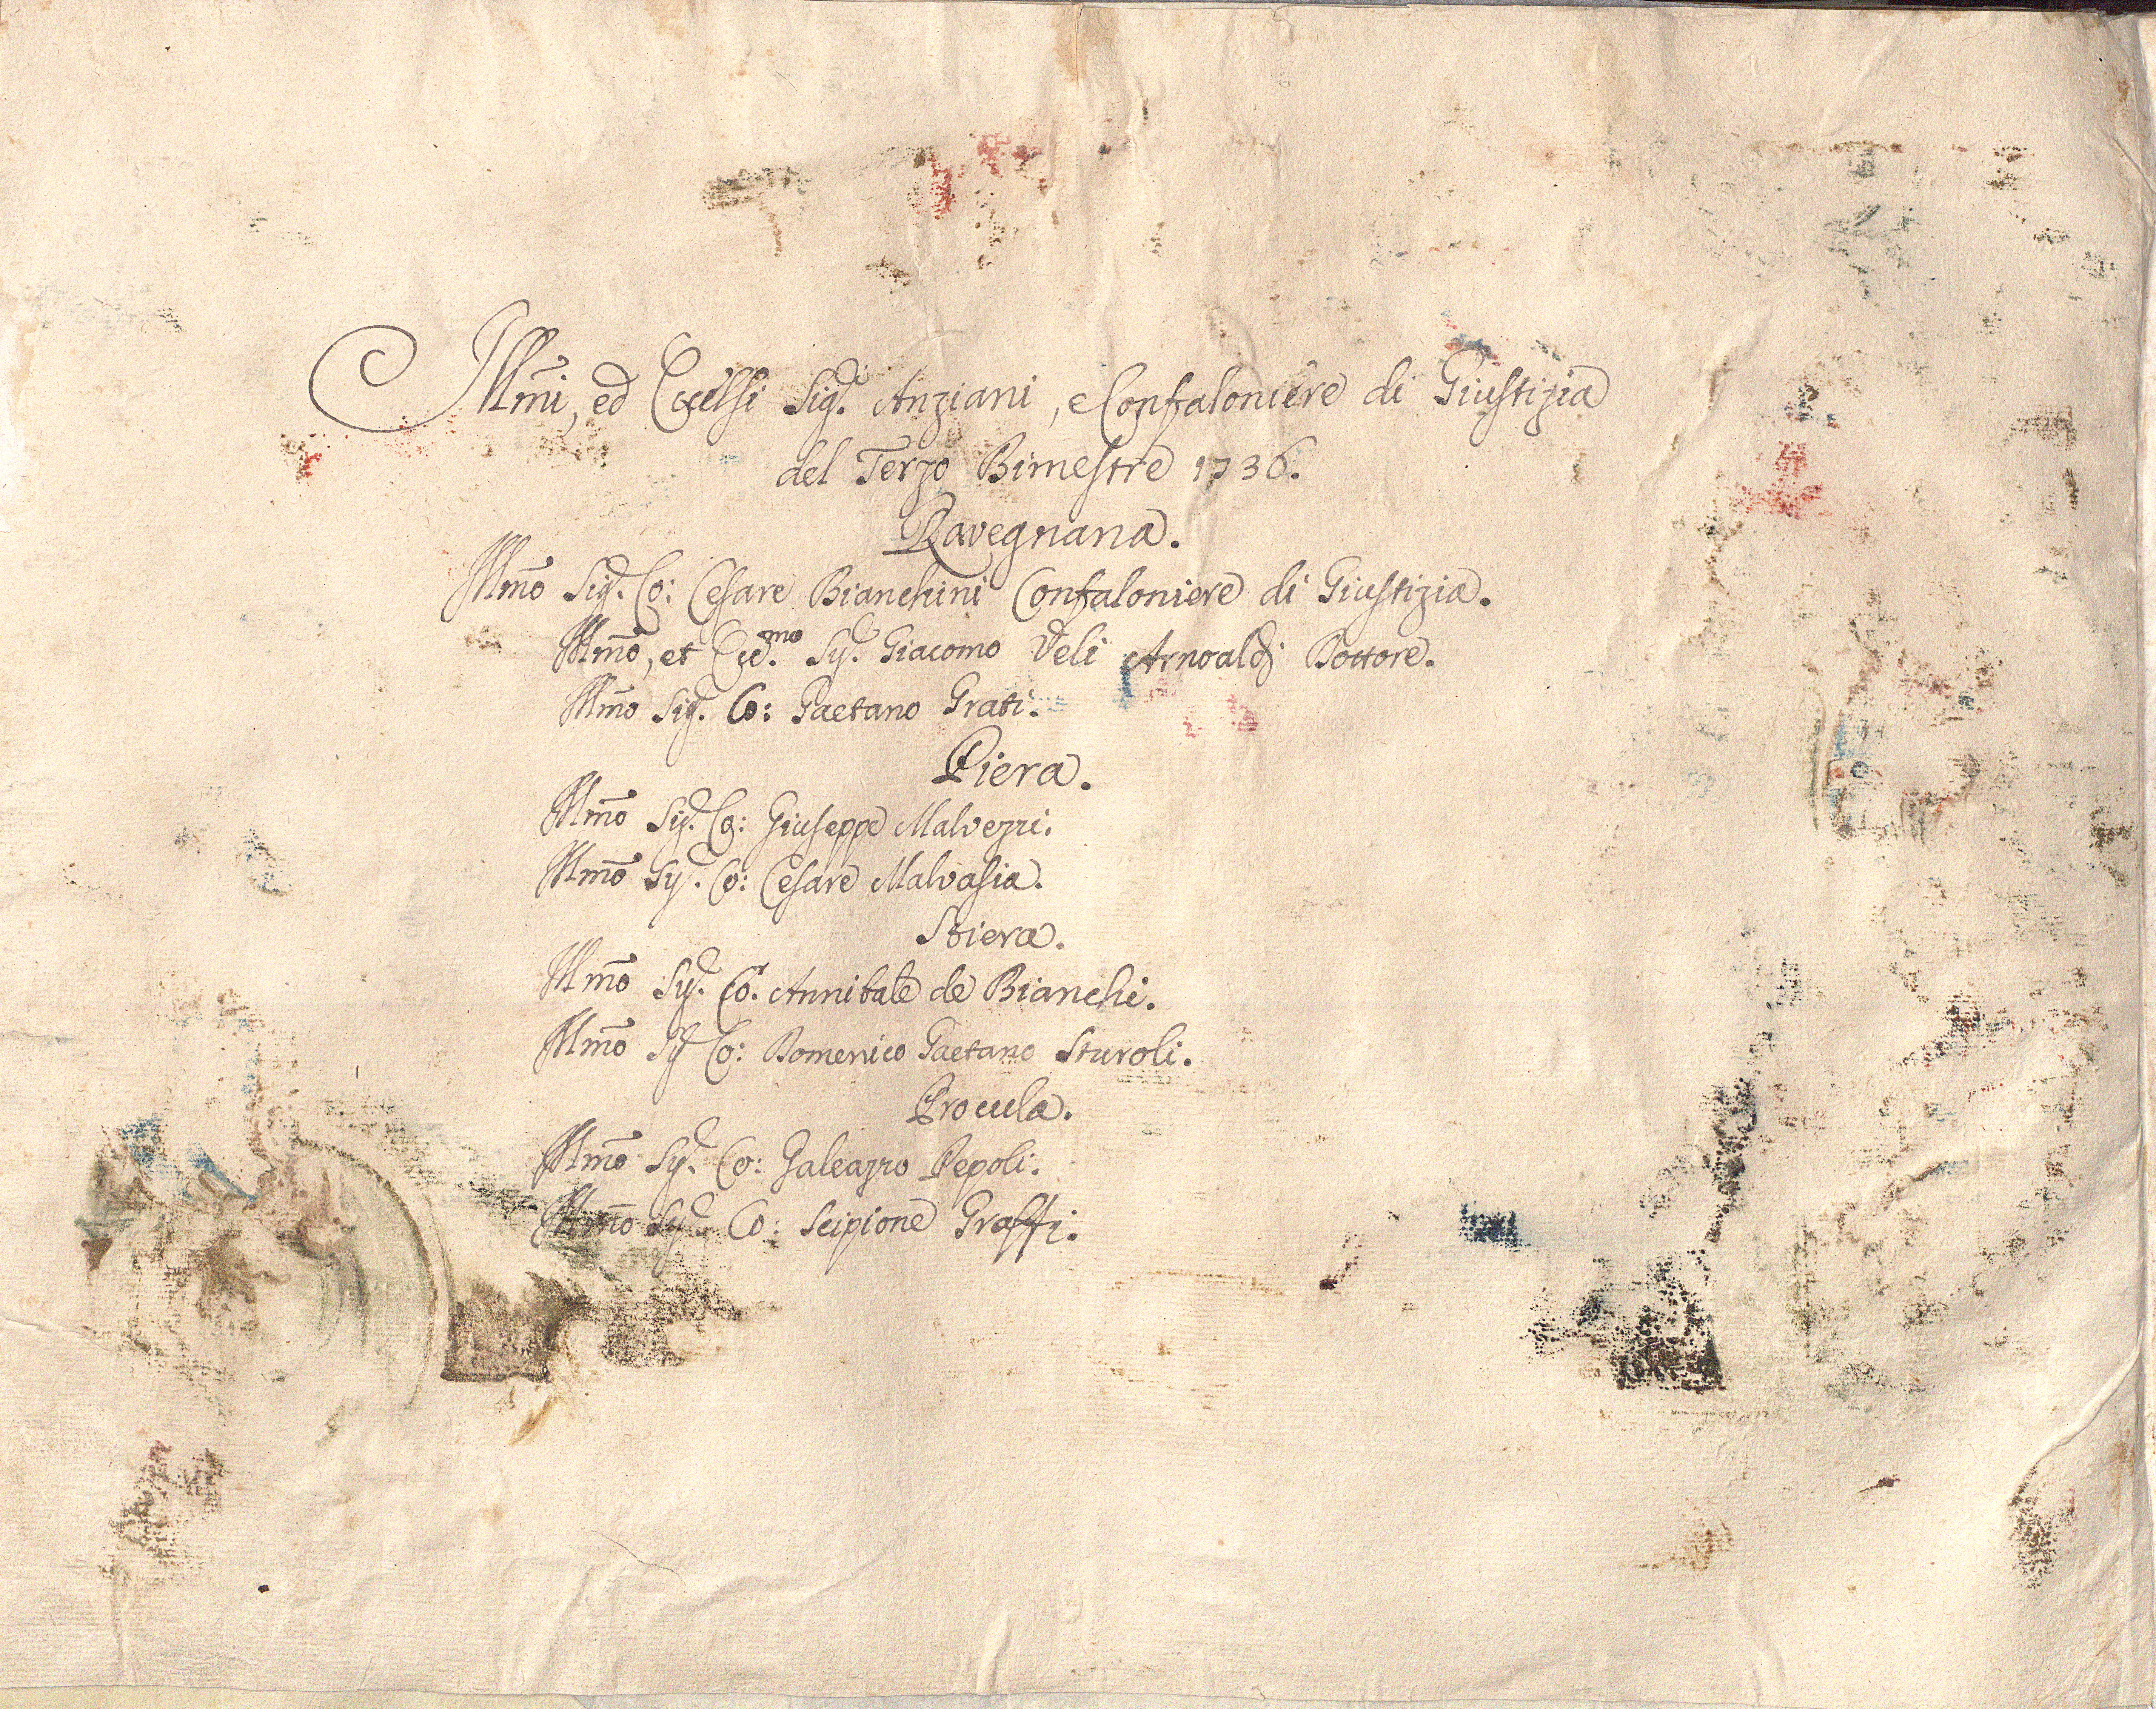 Illmi, ed Eccelsi Sigri. Anziani, e Confaloniere di Giustizia
del Terzo Bimestre 1736.
Ravegnana.
Illmo Sigr. Co: Cesare Bianchini Confaloniere di Giustizia.
Illmo, et Ecc.mo Sigr. Giacomo Veli Arnoaldi Dottore.
Illmo Sigr. Co: Gaetano Grati.
Piera.
Illmo Sigr. Co: Giuseppe Malvezzi.
Illmo Sigr. Co: Cesare Malvasia.
Stiera.
Illmo Sigr. Co: Annibale de Bianchi.
Illmo Sigr Co: Domenico Gaetano Sturoli.
Procula.
Illmo Sigr. Co: Galeazzo Pepoli.
Illmo Sigr. Co: Scipione Graffi.